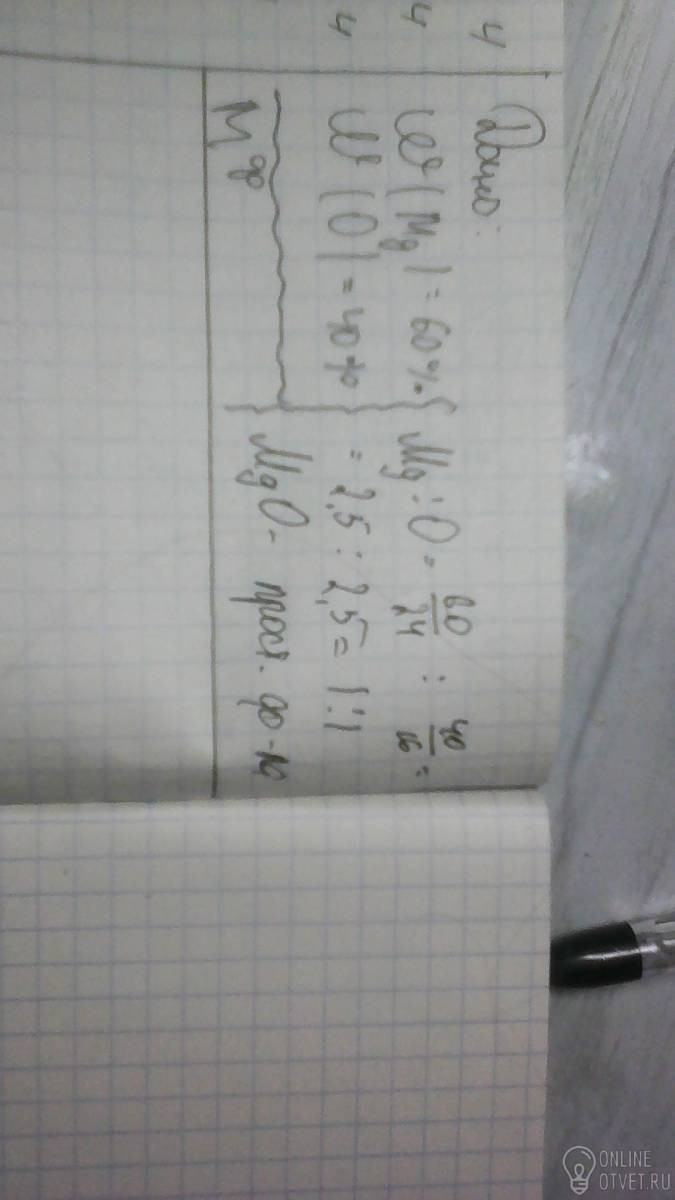 Дано:
w (Mg) = 60%
w (O) = 40%
M ф
Mg : O = 60/24 : 40/16 =
= 2,5 : 2,5 = 1:1
MgO - прост. ф-ла
4
4
4
ONLINE
OTVET.RU